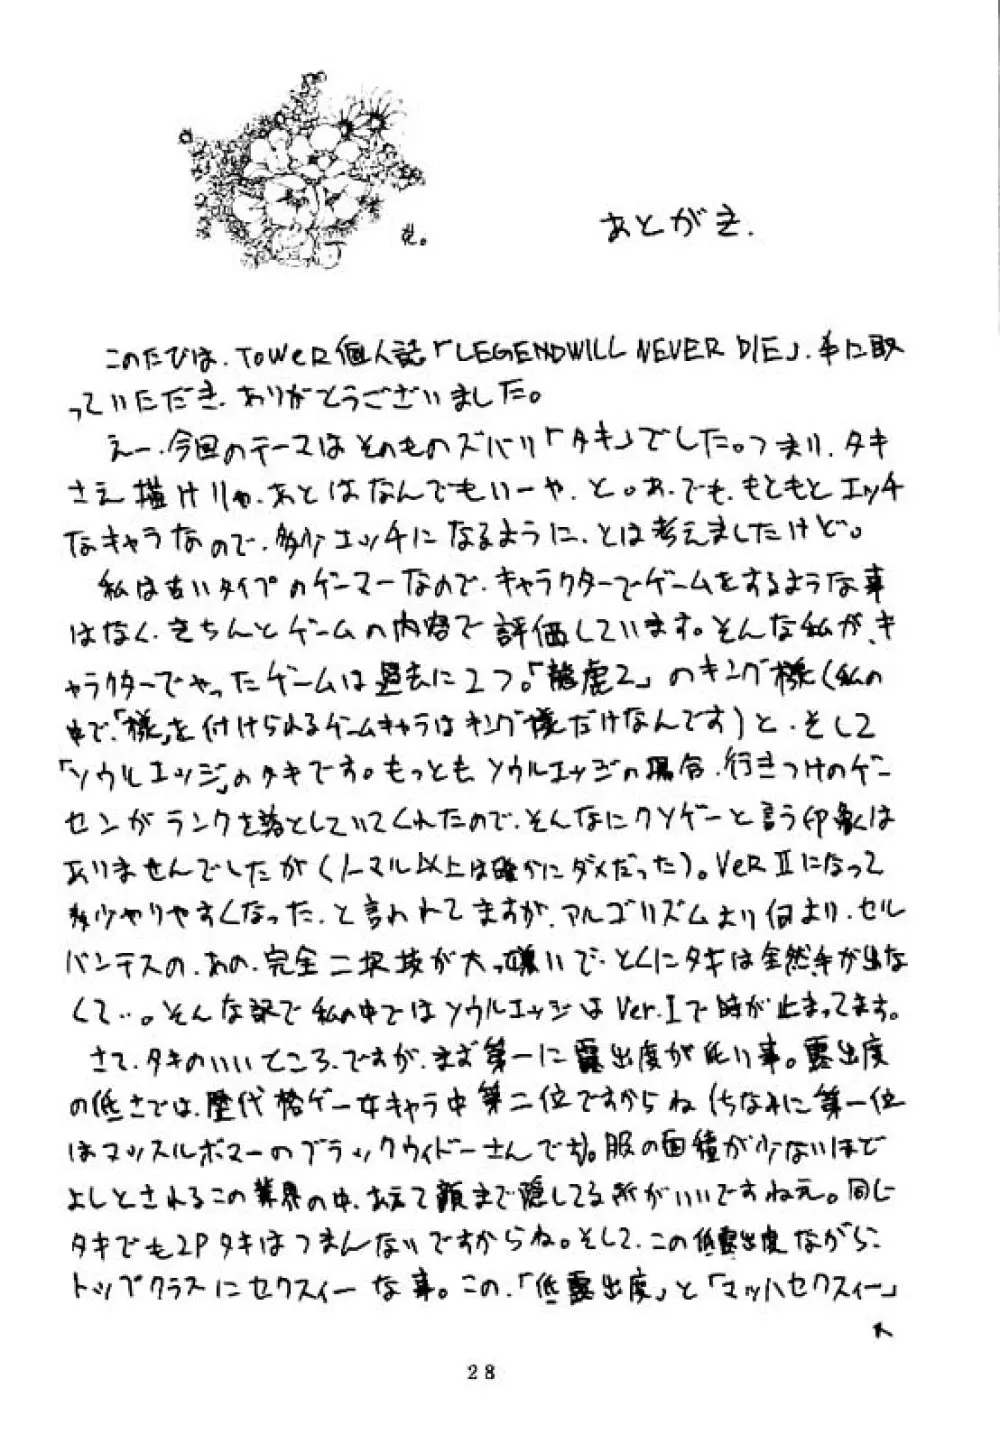 あとがき.
このたびは、TOWER個人誌「LEGENDWILL NEVER DIE」、手に取
っていただき、ありがとうございました。
えー、今回のテーマはそのものズバリ「タキ」でした。つまり、タキ
さえ描けりゃ、あとはなんでもいーや、と。あ、でも、もともとエッチ
なキャラなので、多少エッチになるように、とは考えましたけど。
私は古いタイプのゲーマーなので、キャラクターでゲームをするような事
はなく、きちんとゲームの内容で評価しています。そんな私が、キ
ャラクターでやったゲームは過去に2つ。「龍虎2」のキング様(私の
中で、「様」を付けられるゲームキャラはキング様だけなんです)と、そして
「ソウルエッジ」のタキです。もっとも、ソウルエッジの場合、行きつけのゲー
センがランクを落としていてくれたので、そんなにクソゲーと言う印象は
ありませんでしたが(ノーマル以上は確かにダメだった)。VER IIになって
多少やりやすくなった、と言われてますが、アルゴリズムより何より、セル
バンテスの、あの、完全二択技が大っ嫌いで、とくにタキは全然手が出な
くて…。そんな訳で私の中ではソウルエッジはVer.Iで時が止まってます。
さて、タキのいいところ、ですが、まず第一に露出度が低い事。露出度
の低さでは、歴代格ゲー女キャラ中第二位ですからね(ちなみに第一位
はマッスルボマーのブラックウィドーさんです)。服の面積が少ないほど
よしとされるこの業界の中、あえて顔まで隠してる所がいいですねえ。同じ
タキでも2Pタキはつまんないですからね。そして、この低露出度ながら、
トップクラスにセクスィーな事。この、「低露出度」と「マッハセクスィー」
28